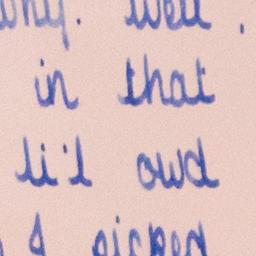 why. Well,
in that
li'l owd
I picked